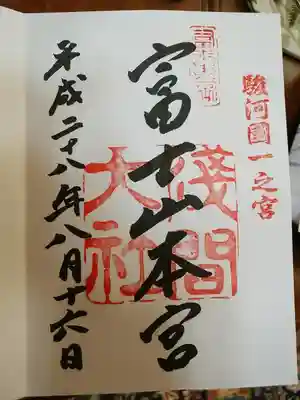 駿河國一之宮
富士山本宮
淺間
大社
平成二十八年八月十六日